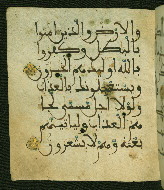 والارض والذين امنوا
بالبطل وكفروا
بالله اوليك هم الخسرون
ويستعجلونك بالعذاب
ولولا اجل مسمى لجا
هم العذاب ولياتينهم
بغتة وهم لا يشعرون